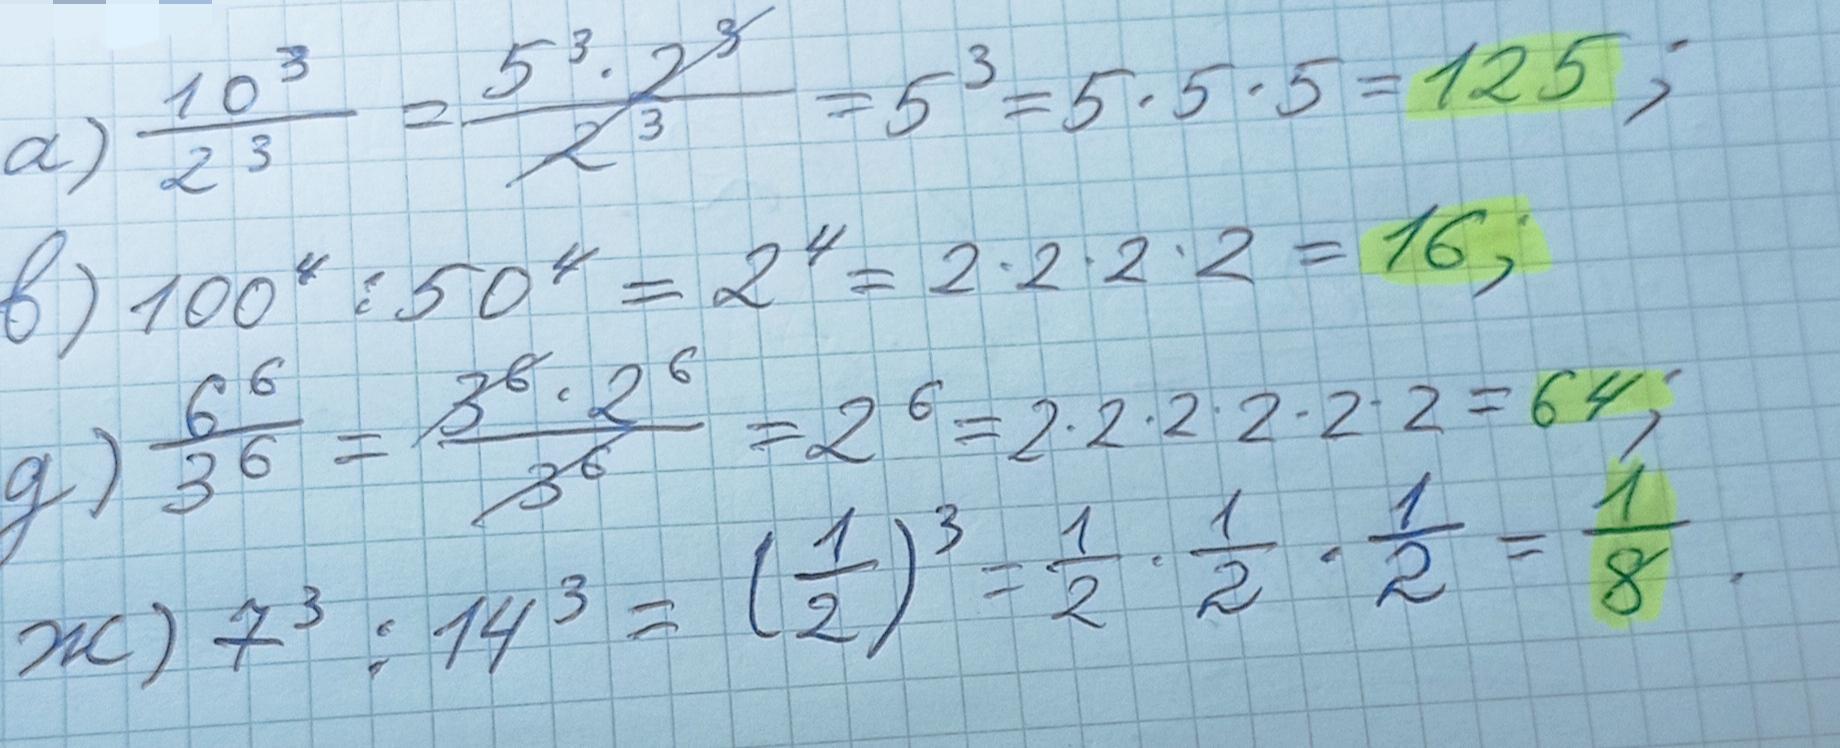 а) 10³/2³ = 5³·2³/2³ = 5³ = 5·5·5 = 125;
в) 100⁴ : 50⁴ = 2⁴ = 2·2·2·2 = 16;
д) 6⁶/3⁶ = 3⁶·2⁶/3⁶ = 2⁶ = 2·2·2·2·2·2 = 64;
ж) 7³ : 14³ = (1/2)³ = 1/2 · 1/2 · 1/2 = 1/8.